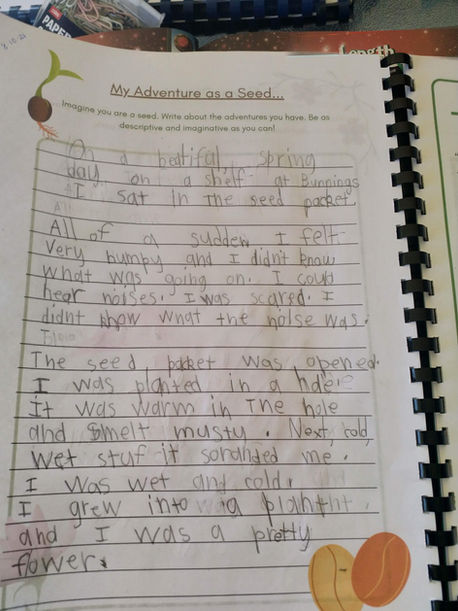 8.10.21
PAPER
Length
My Adventure as a Seed...
Imagine you are a seed. Write about the adventures you have. Be as
descriptive and imaginative as you can!
On a beatiful spring
day on a shelf at Bunnings
I sat in the seed packet.
All of a sudden I felt
very bumpy and I didn't know
what was going on. I could
hear noises. I was scared. I
didnt know what the noise was.
The seed packet was opened.
I was planted in a hole
It was warm in The hole
and smelt musty. Next, cold,
wet stuf it soranded me.
I was wet and cold.
I grew into a plant
and I was a pretty
flower.